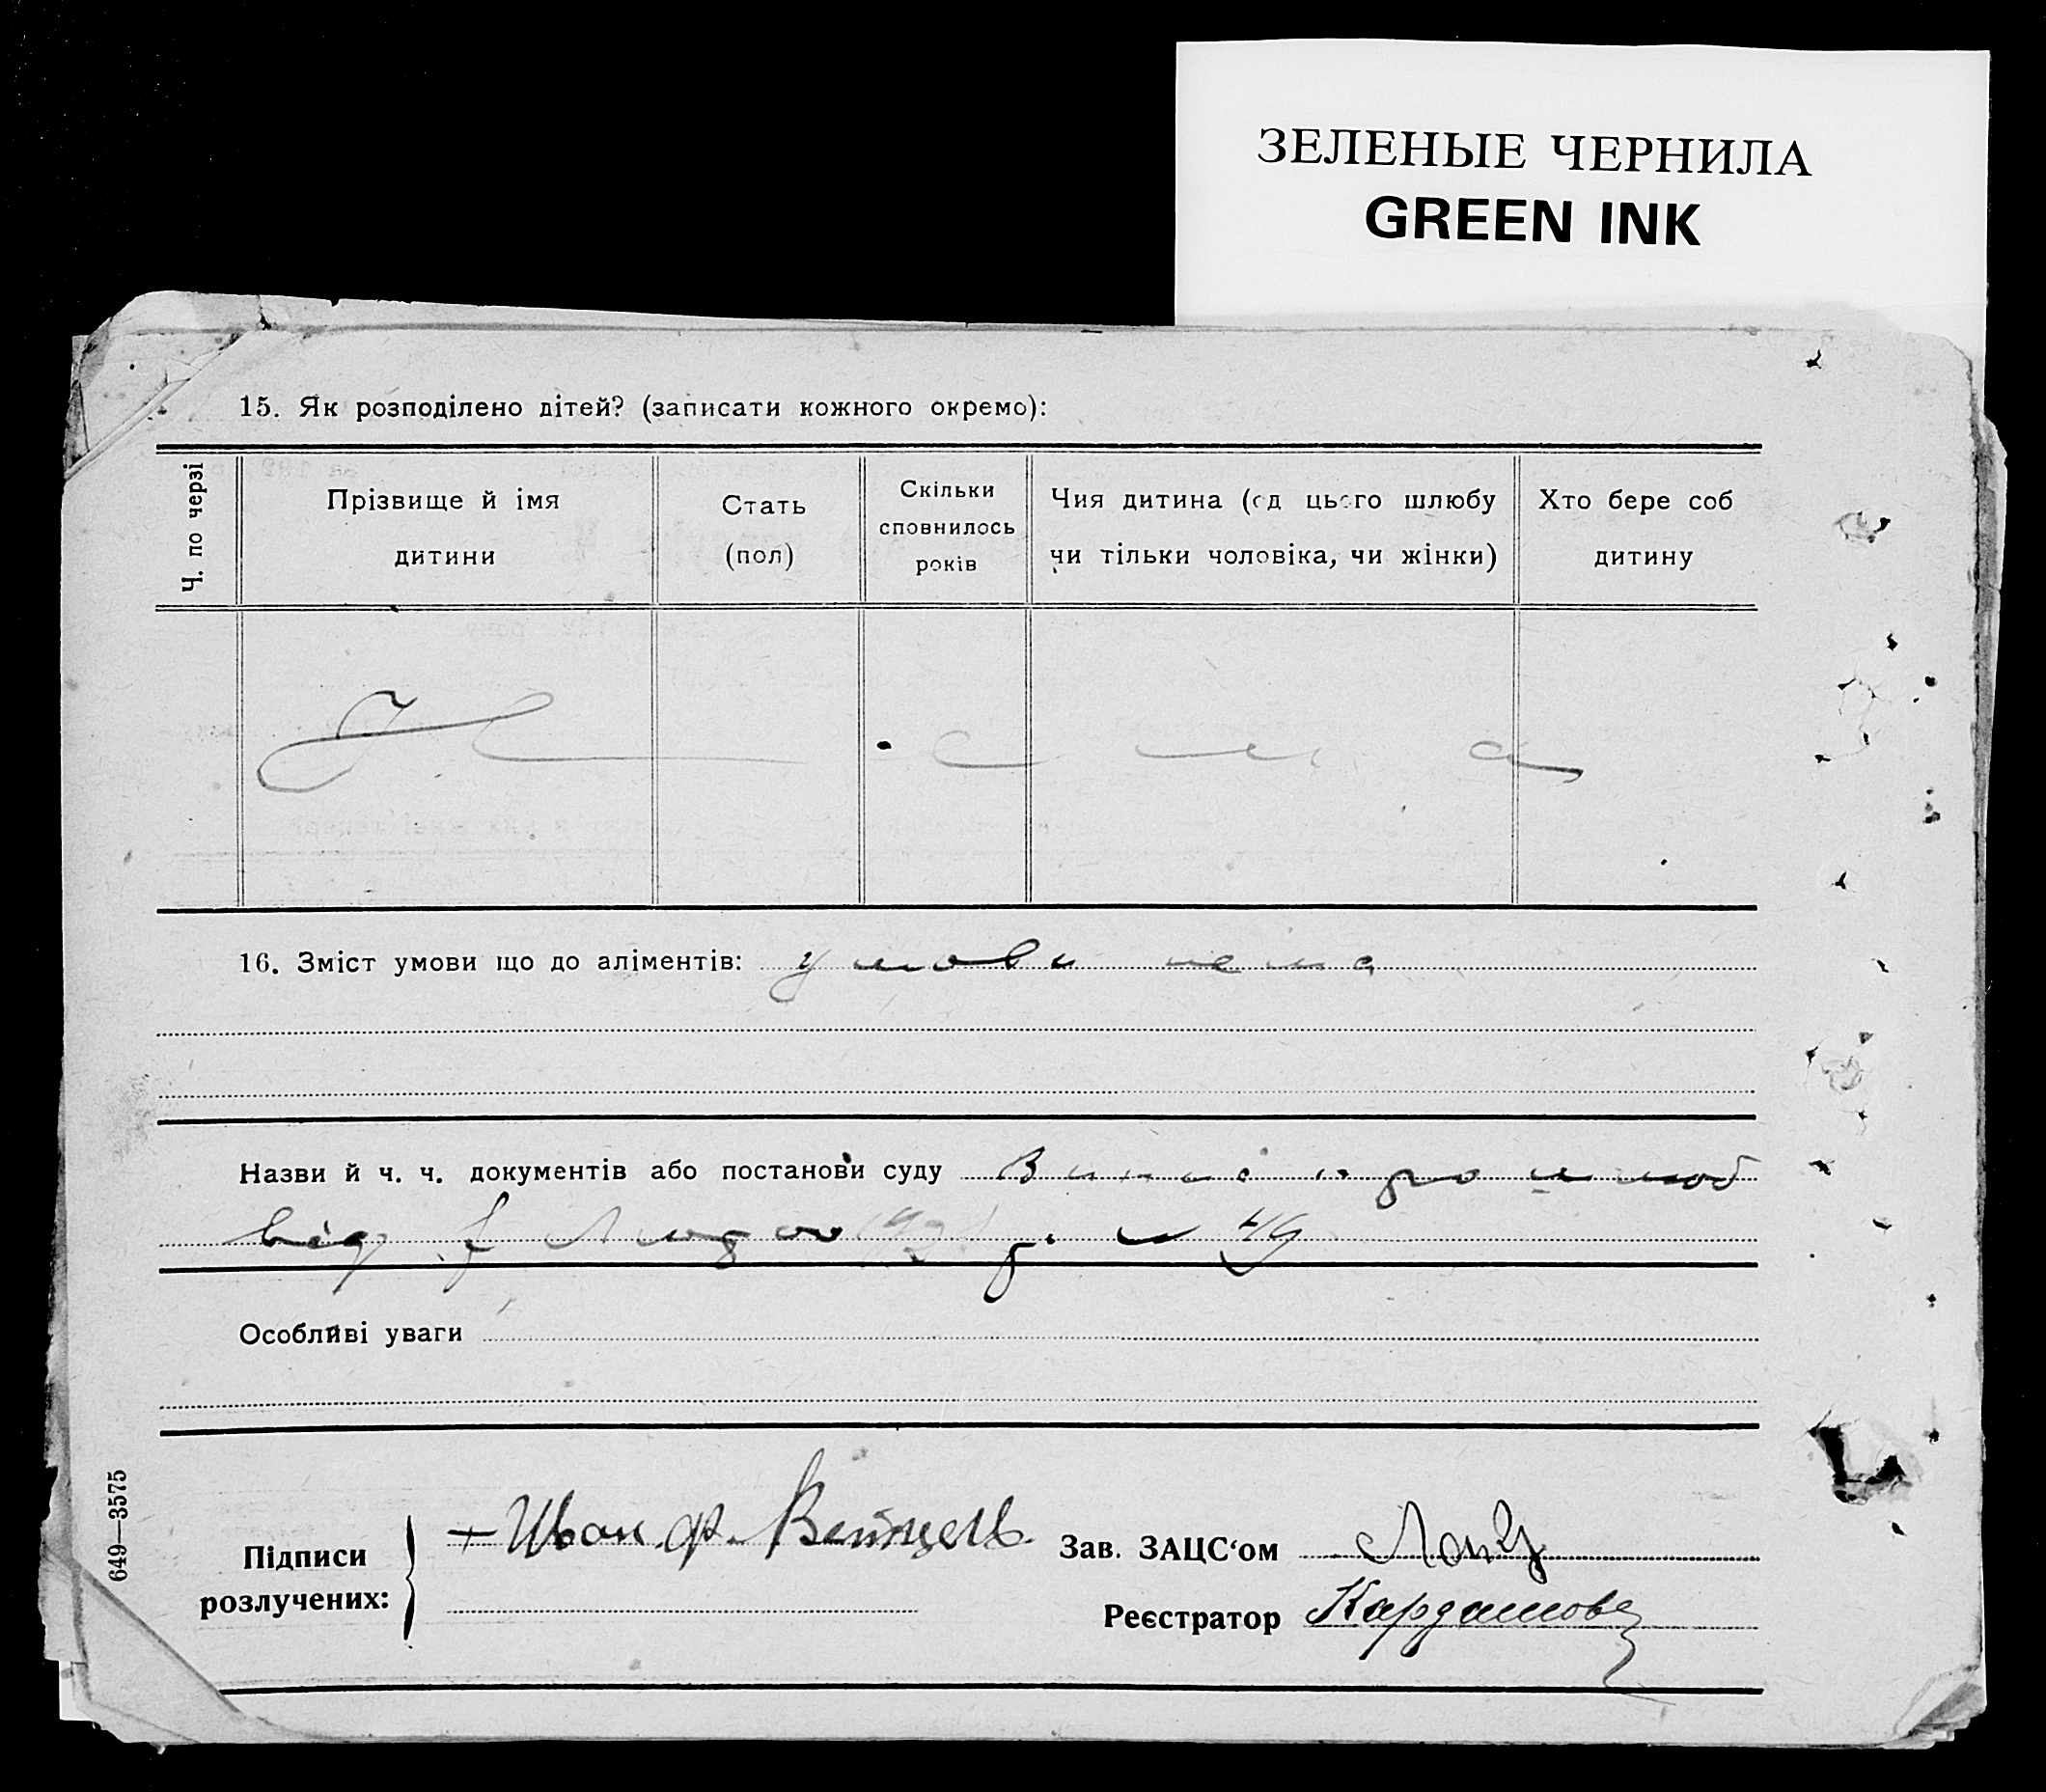 ЗЕЛЕНЫЕ ЧЕРНИЛА
GREEN INK
15. Як розподілено дітей? (записати кожного окремо):
Ч. по черзі
Прізвище й імя
дитини
Стать
(пол)
Скільки
сповнилось
років
Чия дитина (од цього шлюбу
чи тільки чоловіка, чи жінки)
Хто бере соб
дитину
16. Зміст умови що до аліментів: умови нема
Назви й ч. ч. документів або постанови суду Випис про шлюб
від
Особливі уваги
649—3575
Підписи
розлучених:
Иван. ф. Вейтцель
Зав. ЗАЦС‘ом
Реєстратор Кардашова